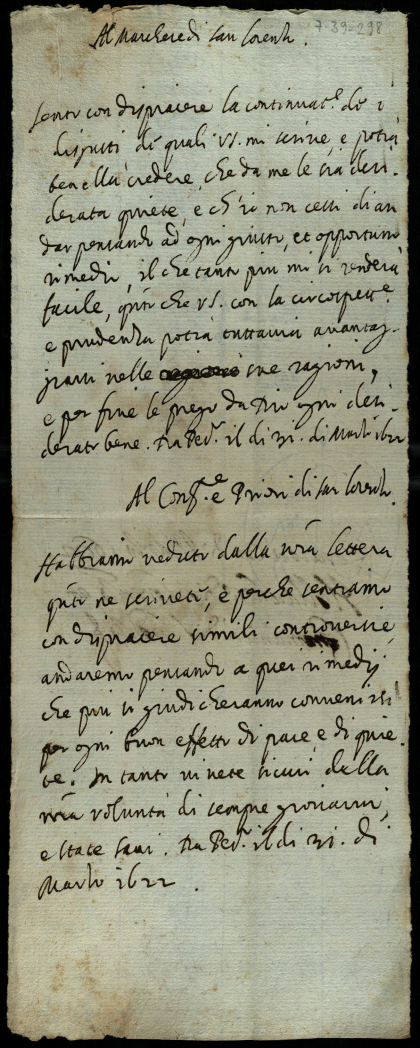 7-39-298
Al Marchese di San Lorenzo.
Sento con dispiacere la continuat.e de i
disgusti de quali VS. mi scrive, e potrà
ben ella credere, che da me le sia desi-
derata quiete, e ch'io non cessi di an
dar pensando ad ogni giusto, et opportuno
rimedio, il che tanto piu mi si renderà
facile, q.to che VS. con la circospett.e
e prudenza potrà tuttavia avantag-
giarsi nelle sue ragioni,
e per fine le prego da Dio ogni desi-
derato bene. Da Pes.o il di 31. di Marzo 1622
Al Conf.e e Priori di San Lorenzo.
Habbiamo veduto dalla vra lettera
q.to ne scrivete, e perche sentiamo
con dispiacere simili controversie,
andaremo pensando a quei rimedij
che piu si giudicheranno convenirsi
per ogni buon effetto di pace, e di quie-
te. In tanto vivete sicuri della
nra volunta di sempre giovarvi,
e state sani. Da Pes.o il di 31. di
Marzo 1622.